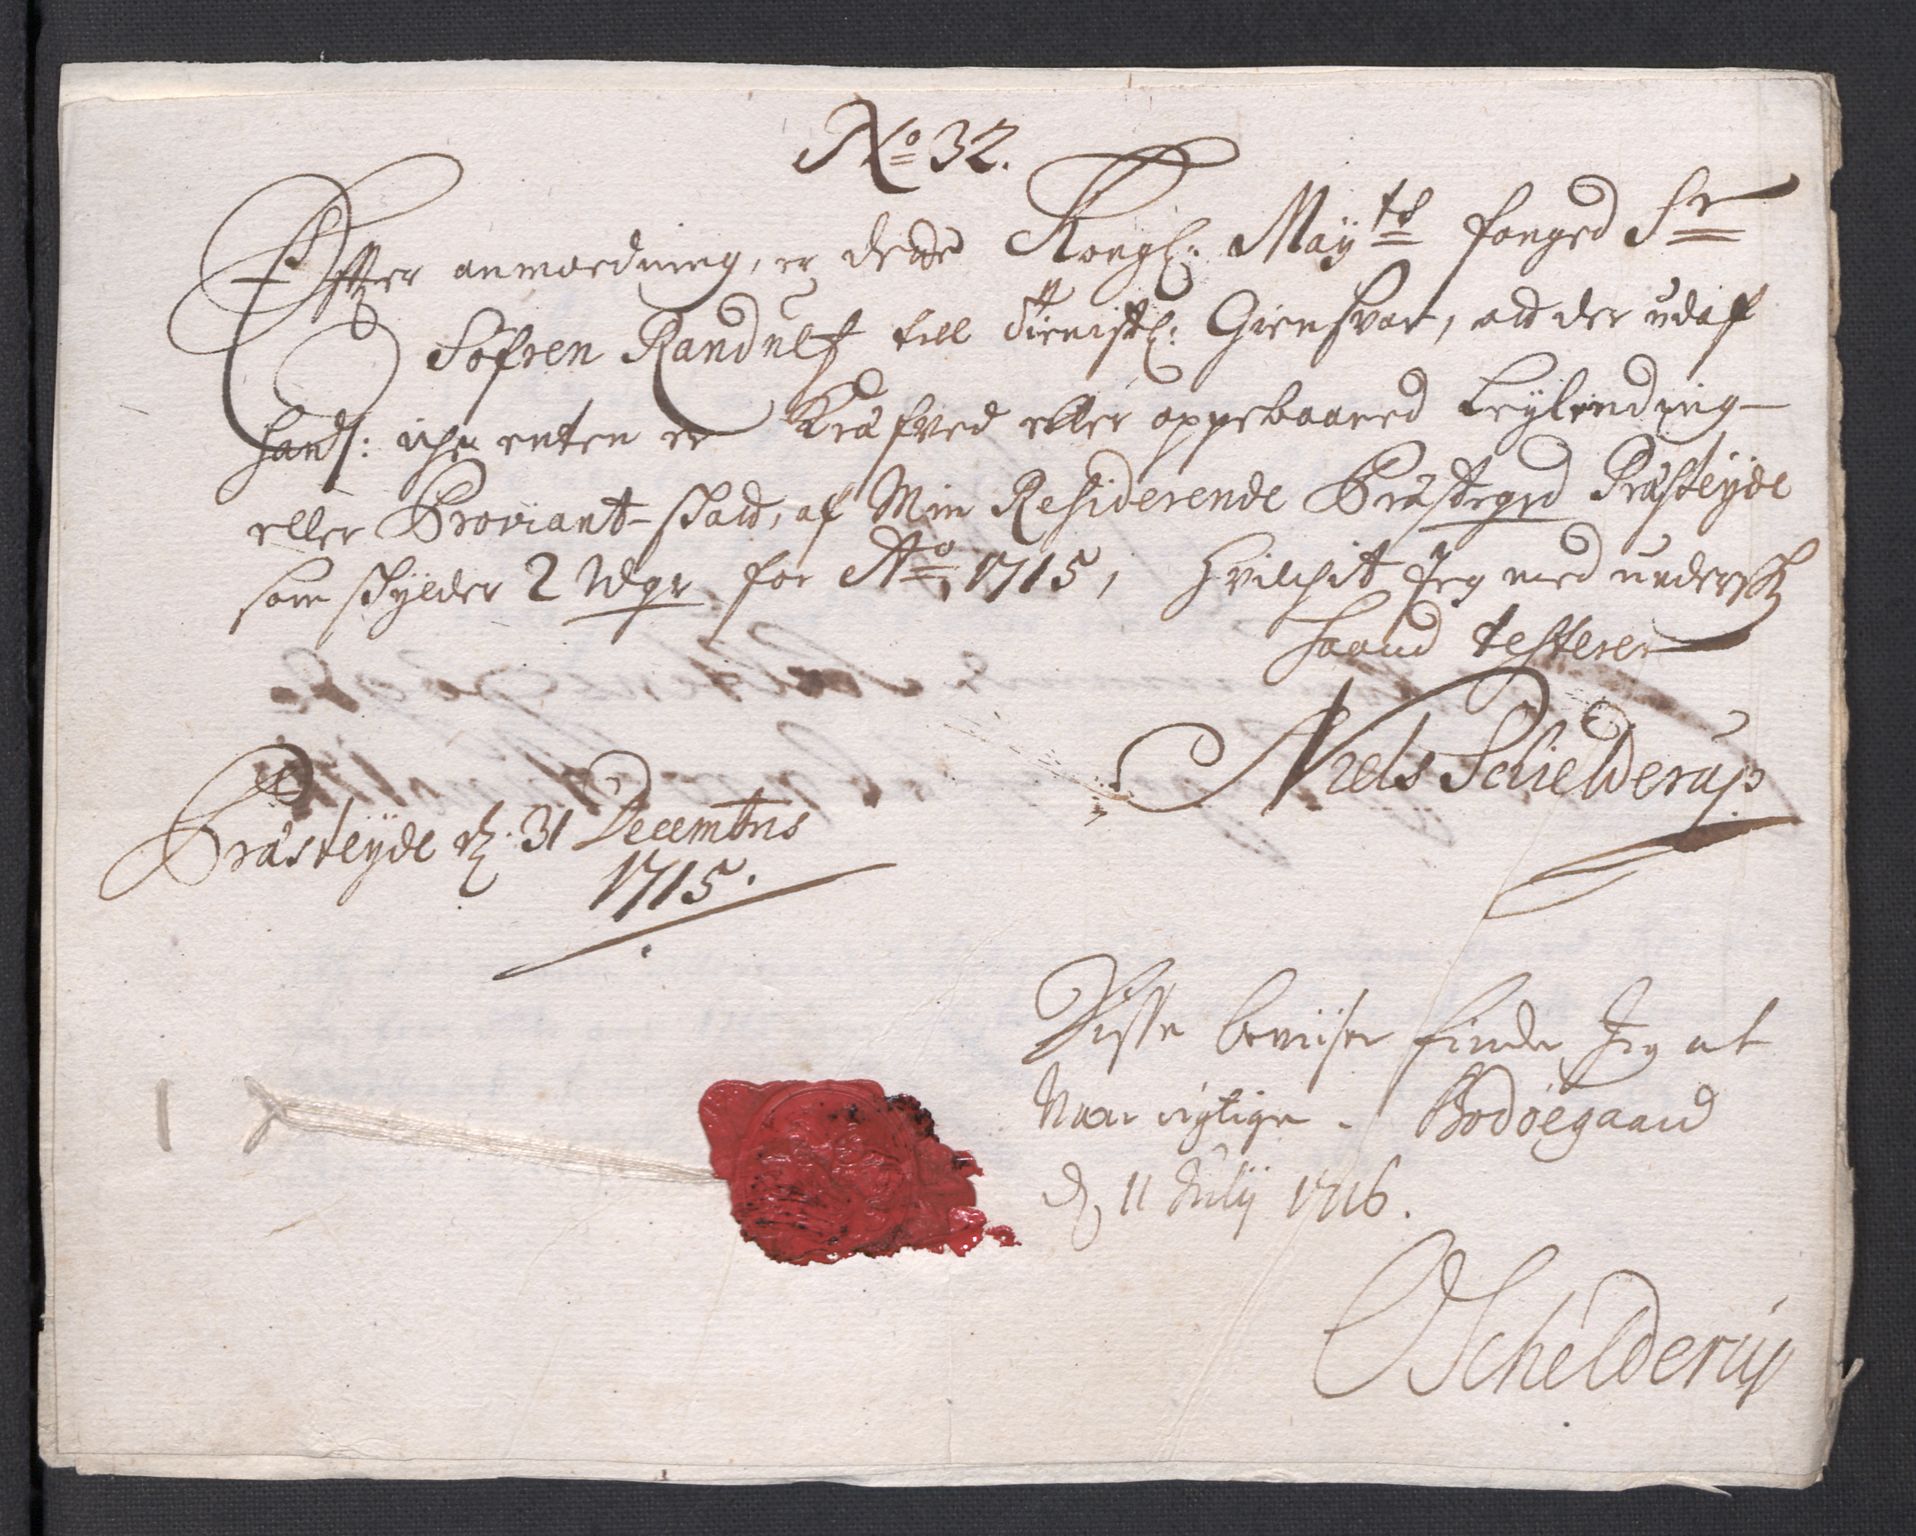 No 32.
Effter anmoedning, er dette Kongl: Mayts fouged Sr
Søfren Randulf till tienistl: Giensvar, att der udaf
hands: iche enten er Kræfved eller oppebaared Leylending
eller Proviant-skatt, af Min Residerende Præstegrd Præsteyde
som skylder 2 Wgr for Ao 1715, hvilchit Jeg med undersk
haand testerer
Niels Schielderup
Præsteyde d. 31 Decembris
1715.
Disse beviiser finder Jeg at
være rigtige. Bodøegaard
d. 11 Julij 1716.
OSchelderup